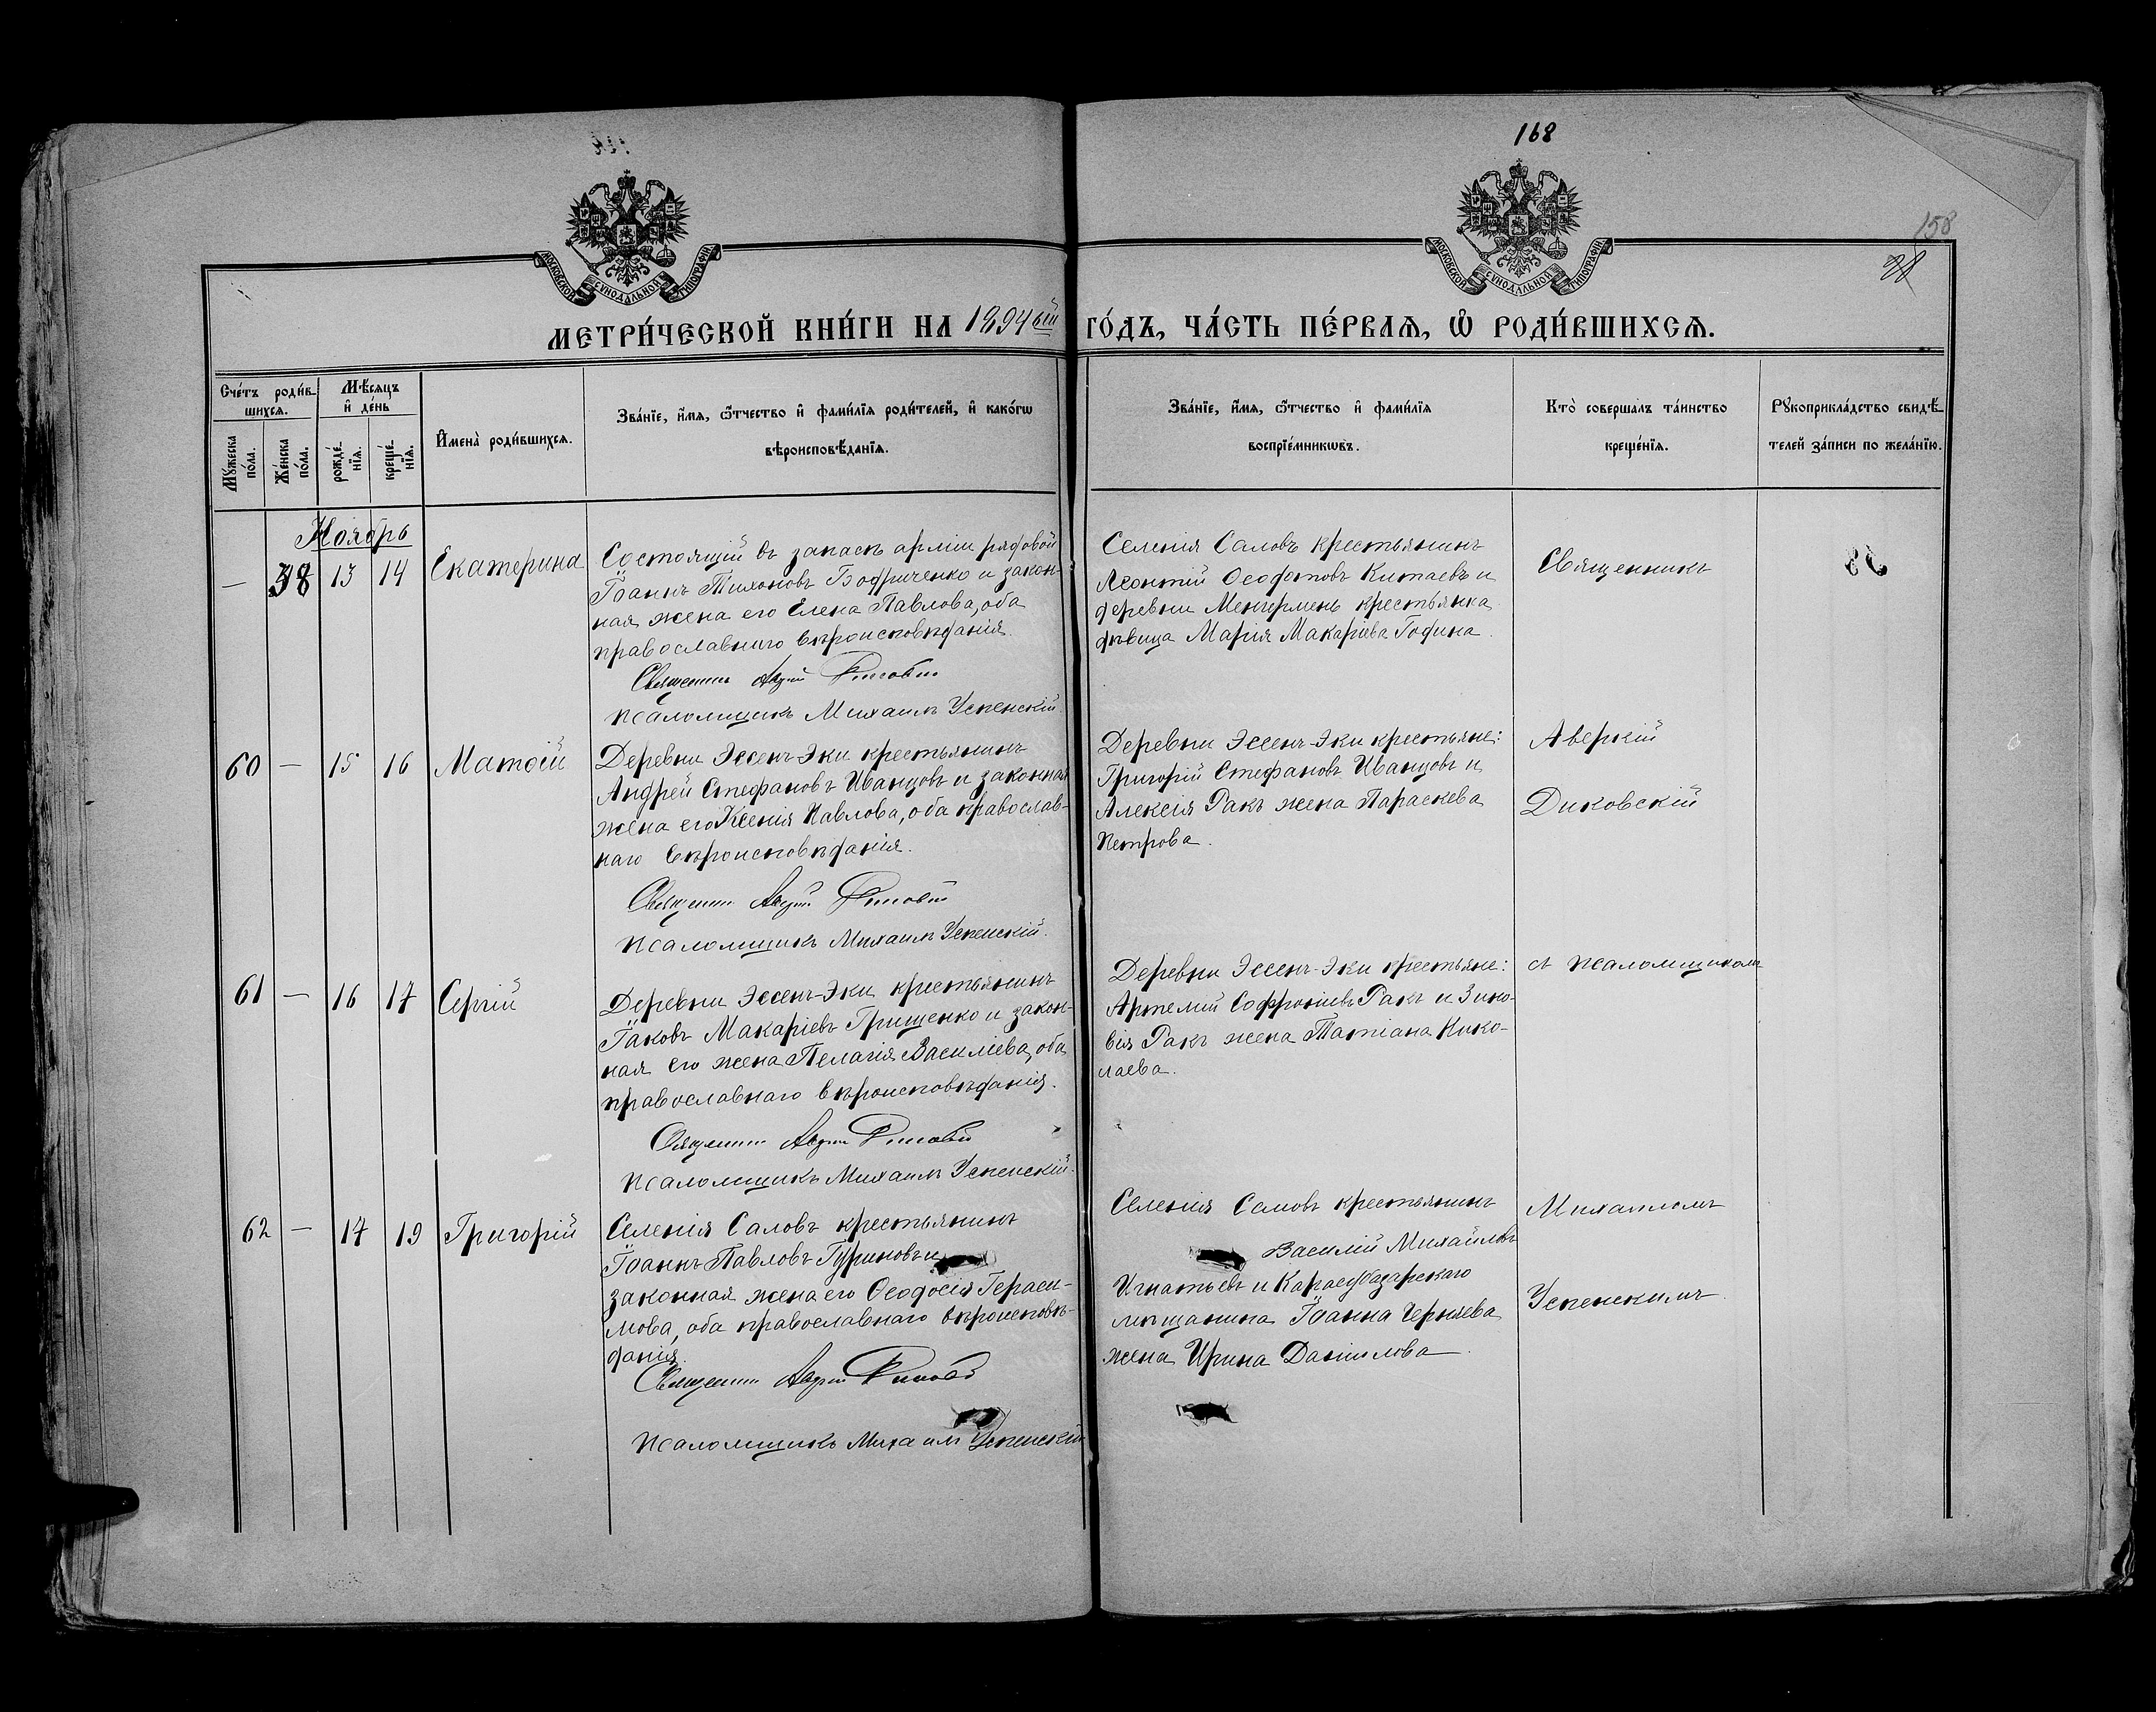 168
158
28
МОСКОВСКОЙ СУНОДАЛЬНОЙ ТИПОГРАФІИ
МОСКОВСКОЙ СУНОДАЛЬНОЙ ТИПОГРАФІИ
МЕТРИ́ЧЕСКОЙ КНИ́ГИ НА 1894ый ГО́ДЪ, ЧА́СТЬ ПЕ́РВАѦ, Ѡ҆ РОДИ́ВШИХСѦ.
Сче́тъ роди́в-
шихсѧ.
Мꙋ́жеска
по́ла.
Же́нска
по́ла.
Мѣ́сѧцъ
и҆ де́нь
рожде́-
нїѧ.
креще́-
нїѧ.
И҆мена̀ роди́вшихсѧ.
Зва́нїе, и҆́мѧ, ѻ҆́тчество и҆ фами́лїѧ роди́телей, и҆ како́гѡ
вѣроисповѣ́данїѧ.
Зва́нїе, и҆́мѧ, ѻ҆́тчество и҆ фами́лїѧ
воспрїе́мникѡвъ.
Кто̀ соверша́лъ та́инство
креще́нїѧ.
Рꙋкоприкла́дство свидѣ́-
телей за́писи по жела́нїю.
Ноябрь
— 38 13 14 Екатерина
Состоящій въ запасѣ арміи рядовой
Іоаннъ Тихоновъ Бофриченко и закон-
ная жена его Елена Павлова, оба
православнаго вѣроисповѣданія.
Священникъ
Псаломщикъ Михаилъ Успенскій.
Селенія Саловъ крестьянинъ
Леонтій Ѳеофотовъ Китаевъ и
деревни Менгермень крестьянка
дѣвица Марія Макаріева Година.
Священникъ
60 — 15 16 Матѳій
Деревни Эссенъ-Эки крестьянинъ
Андрей Стефановъ Иванцовъ и законная
жена его Ксенія Павлова, оба православ-
наго вѣроисповѣданія.
Священникъ
Псаломщикъ Михаилъ Успенскій.
Деревни Эссенъ-Эки крестьяне:
Григорій Стефановъ Иванцовъ и
Алексія Ракъ жена Параскева
Петрова.
Аверкій
Диковскій
61 — 16 17 Сергій
Деревни Эссенъ-Эки крестьянинъ
Іаковъ Макаріевъ Грищенко и закон-
ная его жена Пелагія Василіева, оба
православнаго вѣроисповѣданія.
Священникъ
Псаломщикъ Михаилъ Успенскій.
Деревни Эссенъ-Эки крестьяне:
Артемій Софроніевъ Ракъ и Зино-
вія Ракъ жена Татіана Нико-
лаева.
съ псаломщикомъ
62 — 17 19 Григорій
Селенія Саловъ крестьянинъ
Іоаннъ Павловъ Гуриновъ и
законная жена его Ѳеодосія Гераси-
мова, оба православнаго вѣроисповѣ-
данія.
Священникъ
Псаломщикъ Михаилъ Успенскій
Селенія Саловъ крестьянинъ
Василій Михайловъ
Игнатьевъ и Карасубазарскаго
мѣщанина Іоанна Черняева
жена Ирина Даніилова
Михаиломъ
Успенскимъ.